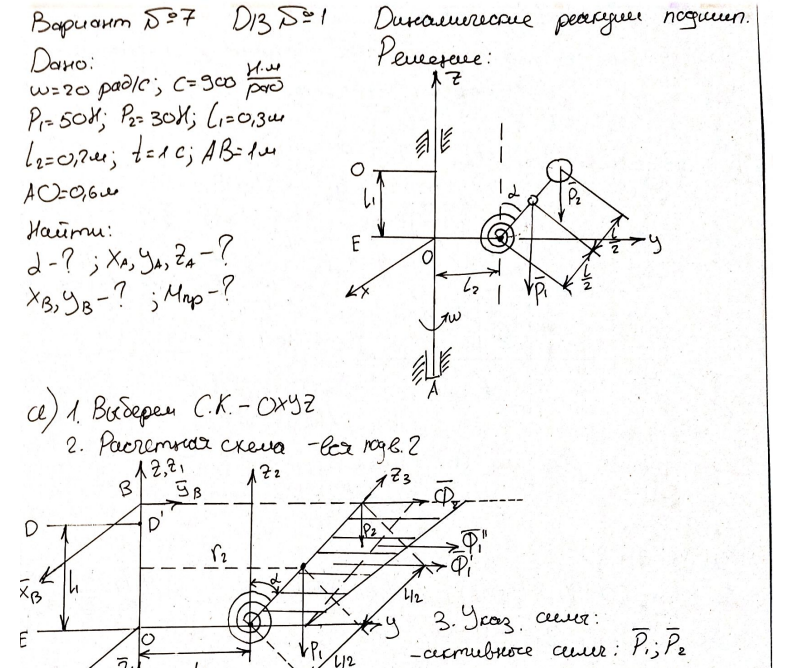 Вариант №7 Д13 №1 Динамические реакции подшип.
Дано: Решение:
ω=20 рад/с; c=900 Н·м/рад
P₁=50Н; P₂=30Н; l₁=0,3м
l₂=0,2м; t=1 с; AB=1м
AO=0,6м
Найти:
α-? ; X_A, Y_A, Z_A-?
X_B, Y_B-? ; Mпр-?
Z
O
l₁
α
P̄₂
E
O
y
l/2
l/2
l₂
P̄₁
x
ω
A
а) 1. Выберем С.К. - OXYZ
2. Расчетная схема
Z, Z₁ Z₂ Z₃
B ȳ_B Ф̄₂
D D' P₂
r₂ Ф̄₁''
Ф̄₁'
l₁ α
x̄_B l/2
E O y 3. Указ. силы:
P₁ - активные силы: P̄₁; P̄₂
l/2